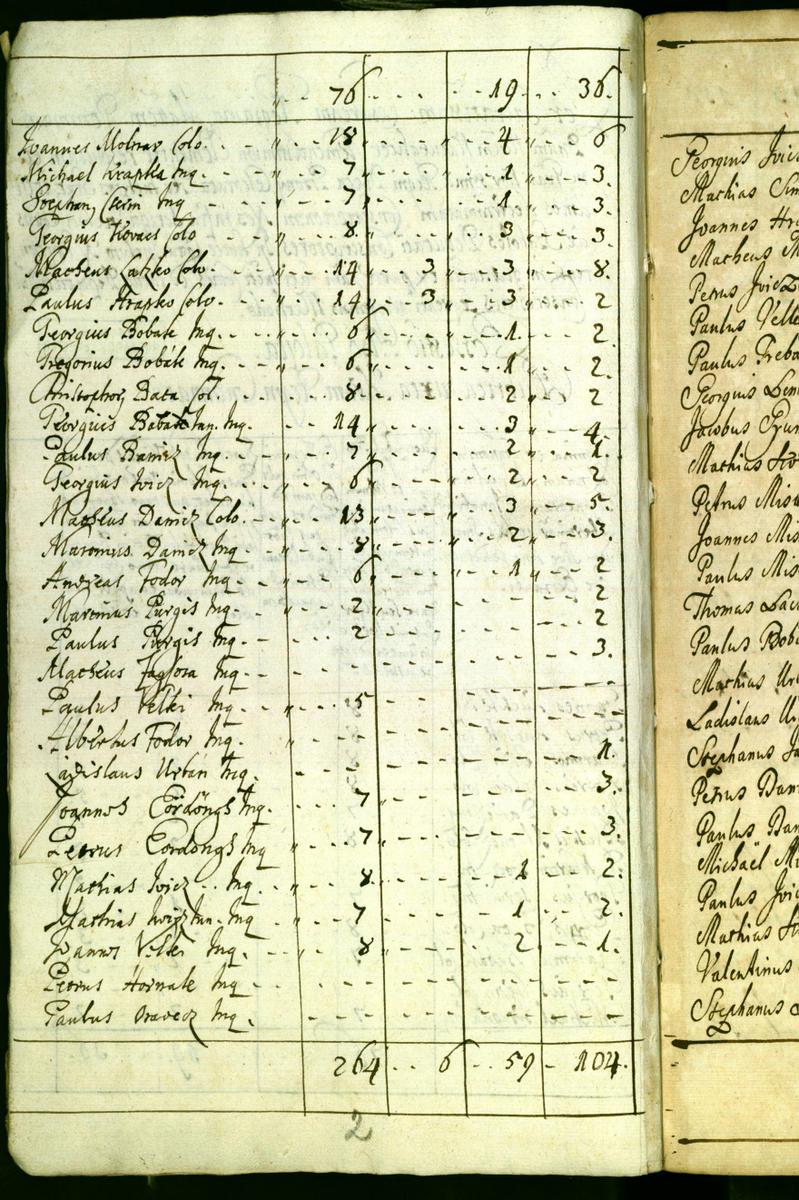 76 19 36.
Joannes Molnar Colo. 18 4 6
Michael Krapka Inq. 7 1 3.
Stephanus Czerni Inq 7 1 3.
Georgius Kovacs Colo 8 3 3.
Matheus Latzko Colo. 14 3 3 8.
Paulus Hrapko Colo. 14 3 3 2
Georgius Bobak Inq. 6 1 2.
Gregorius Bobák Inq. 6 1 2.
Christophorus Bata Col. 8 2 2
Georgius Babak Iun. Inq. 14 3 4.
Paulus Danicz Inq. 7 2 1.
Georgius Ivicz Inq. 6 2 2
Matheus Danicz Colo. 13 3 5.
Martinus Danicz Inq 8 2 3.
Andreas Fodor Inq 6 1 2
Martinus Purgis Inq. 2 2
Paulus Purgis Inq. 2 2
Matheus Inq 3.
Paulus Velki Inq 5
Albertus Fodor Inq.
Ladislaus Urbán Inq. 1.
Joannes Eördöngs Inq. 7 3.
Petrus Eordongs Inq 7 3.
Mathias Ivicz Inq. 8 1 2.
Mathias Ivicz Iun. Inq 7 1 2.
Joannes Velki Inq. 8 2 1.
Petrus Hornak Inq
Paulus Oravecz Inq.
264 6 59 104.
2
Georgius Ivic
Mathias
Joannes
Matheus
Petrus Jvicz
Paulus Velk
Paulus
Georgius
Jacobus
Mathias
Petrus Mis
Joannes Mis
Paulus Mis
Thomas
Paulus Bob
Mathias Ur
Ladislaus U
Stephanus
Petrus Dan
Paulus Dan
Michaël
Paulus Jvi
Mathias
Valentinus
Stephanus